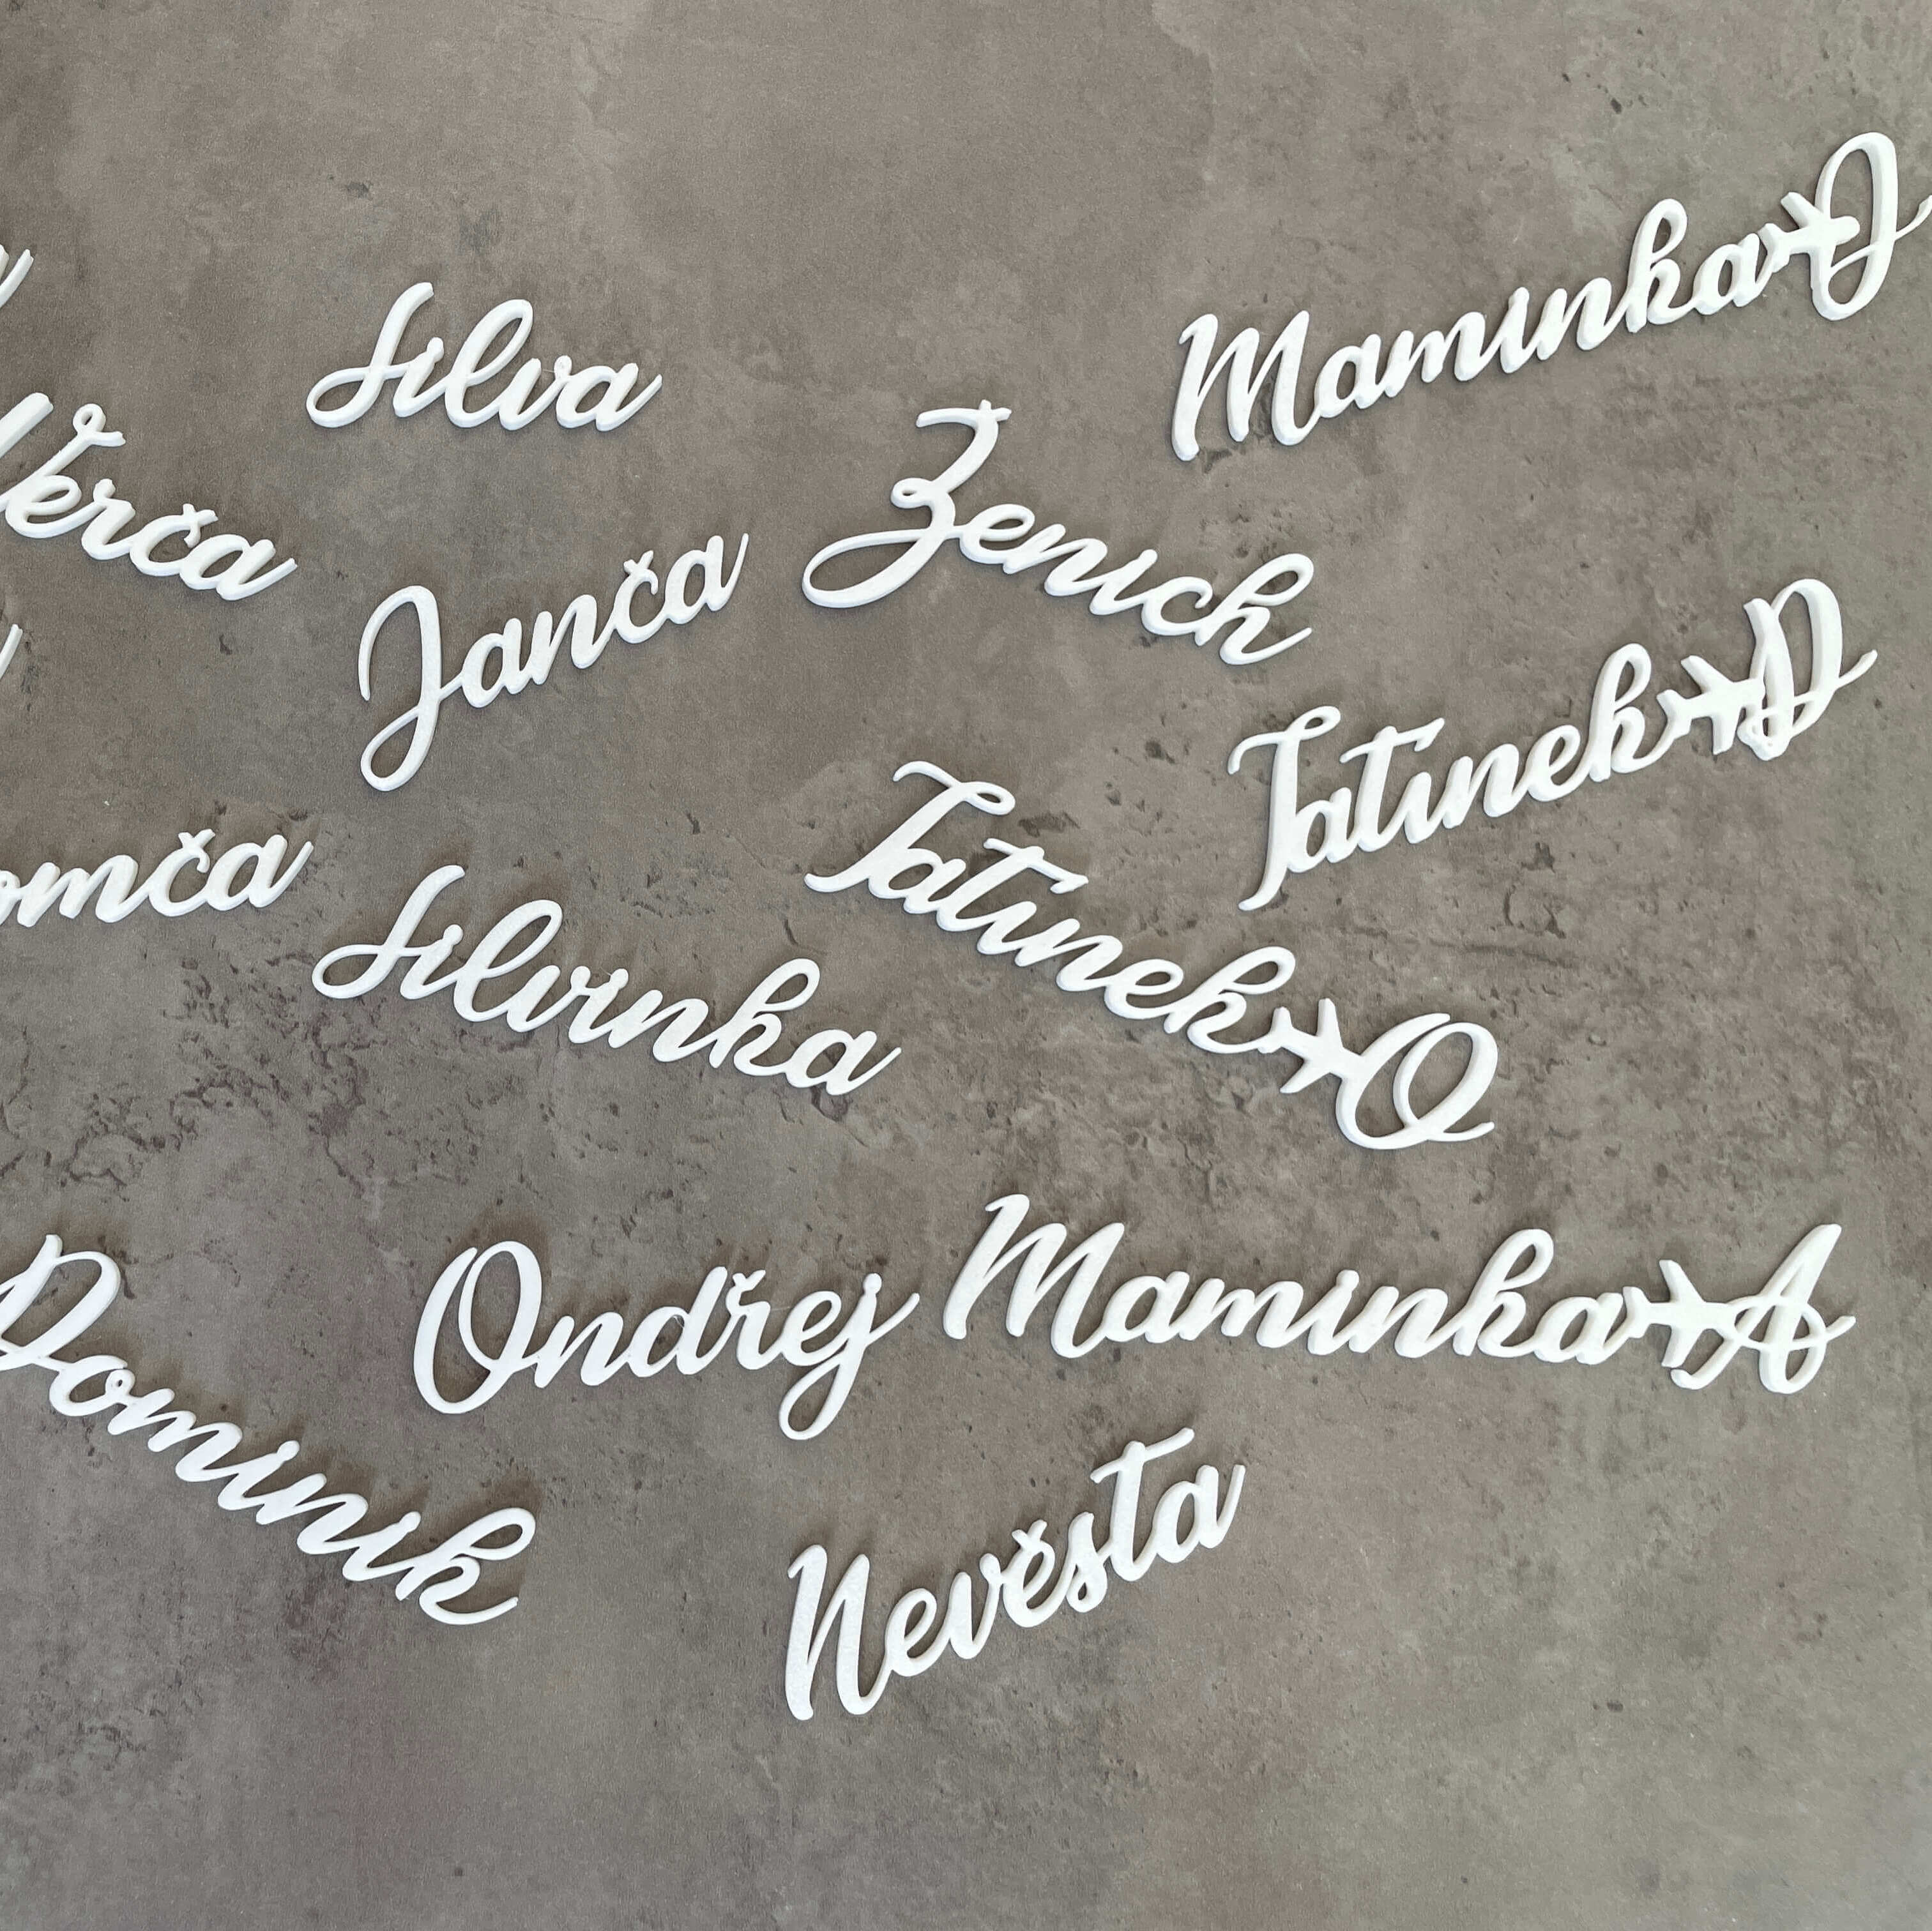 Silva
Maminka J
Verča
Ženich
Janča
Tatínek D
Tatínek O
omča
Silvinka
Ondřej
Maminka A
Dominik
Nevěsta